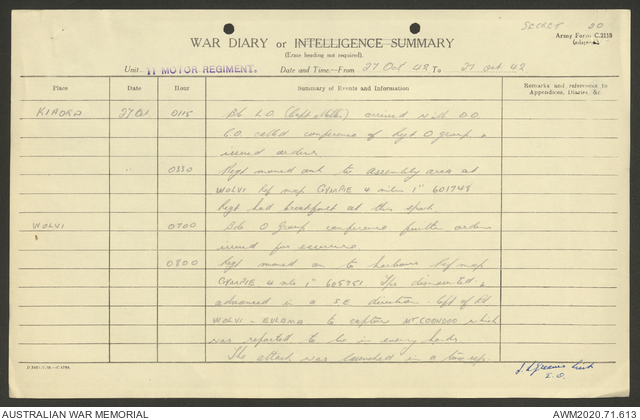 SECRET 20
Army Form C.2118
WAR DIARY or INTELLIGENCE SUMMARY
(Erase heading not required).
Unit 11 MOTOR REGIMENT. Date and Time—From 27 Oct 42 To 27 Oct 42
Place Date Hour Summary of Events and Information Remarks and references to Appendices, Diaries, &c.
KIAORA 27 Oct 0115 Bde L.O. (Capt ) arrived with O.O.
C.O. called conference of Regt O group &
issued orders.
" 0330 Regt moved out to Assembly area at
WOLVI Ref map GYMPIE 4 miles 1" 601748
Regt had breakfast at this spot.
WOLVI 0700 Bde O Group conference further orders
issued for exercise.
0800 Regt moved on to harbour Ref map
GYMPIE 4 mls 1" 605751. The dismounted &
advanced in a S.E. direction left of Rd
WOLVI - EULAMA to capture MT COONDOO which
was reported to be in enemy hands.
The attack was launched in a two
Lieut
I.O.
AUSTRALIAN WAR MEMORIAL AWM2020.71.613